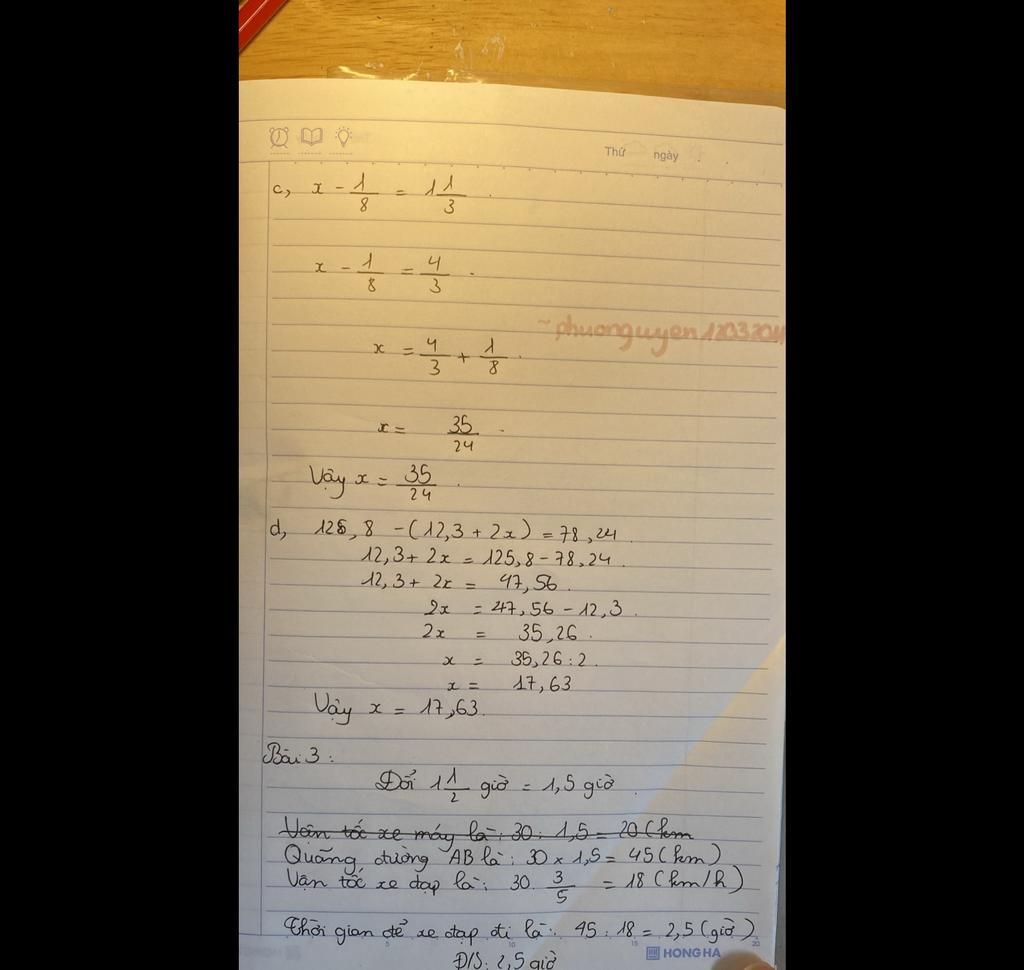 Thứ ngày
c, x - 1/8 = 1 1/3
x - 1/8 = 4/3
~phuonguyen12032011
x = 4/3 + 1/8
x = 35/24
Vậy x = 35/24
d, 125,8 - (12,3 + 2x) = 78,24
12,3 + 2x = 125,8 - 78,24
12,3 + 2x = 47,56
2x = 47,56 - 12,3
2x = 35,26
x = 35,26 : 2
x = 17,63
Vậy x = 17,63
Bài 3 :
Đổi 1 1/2 giờ = 1,5 giờ
Vận tốc xe máy là: 30 : 1,5 = 20 (km
Quãng đường AB là : 30 x 1,5 = 45 (km)
Vận tốc xe đạp là: 30 . 3/5 = 18 (km/h)
Thời gian để xe đạp đi là: 45 : 18 = 2,5 (giờ)
HONG HA 5 10 15 HONG HA 20
Đ/S: 2,5 giờ